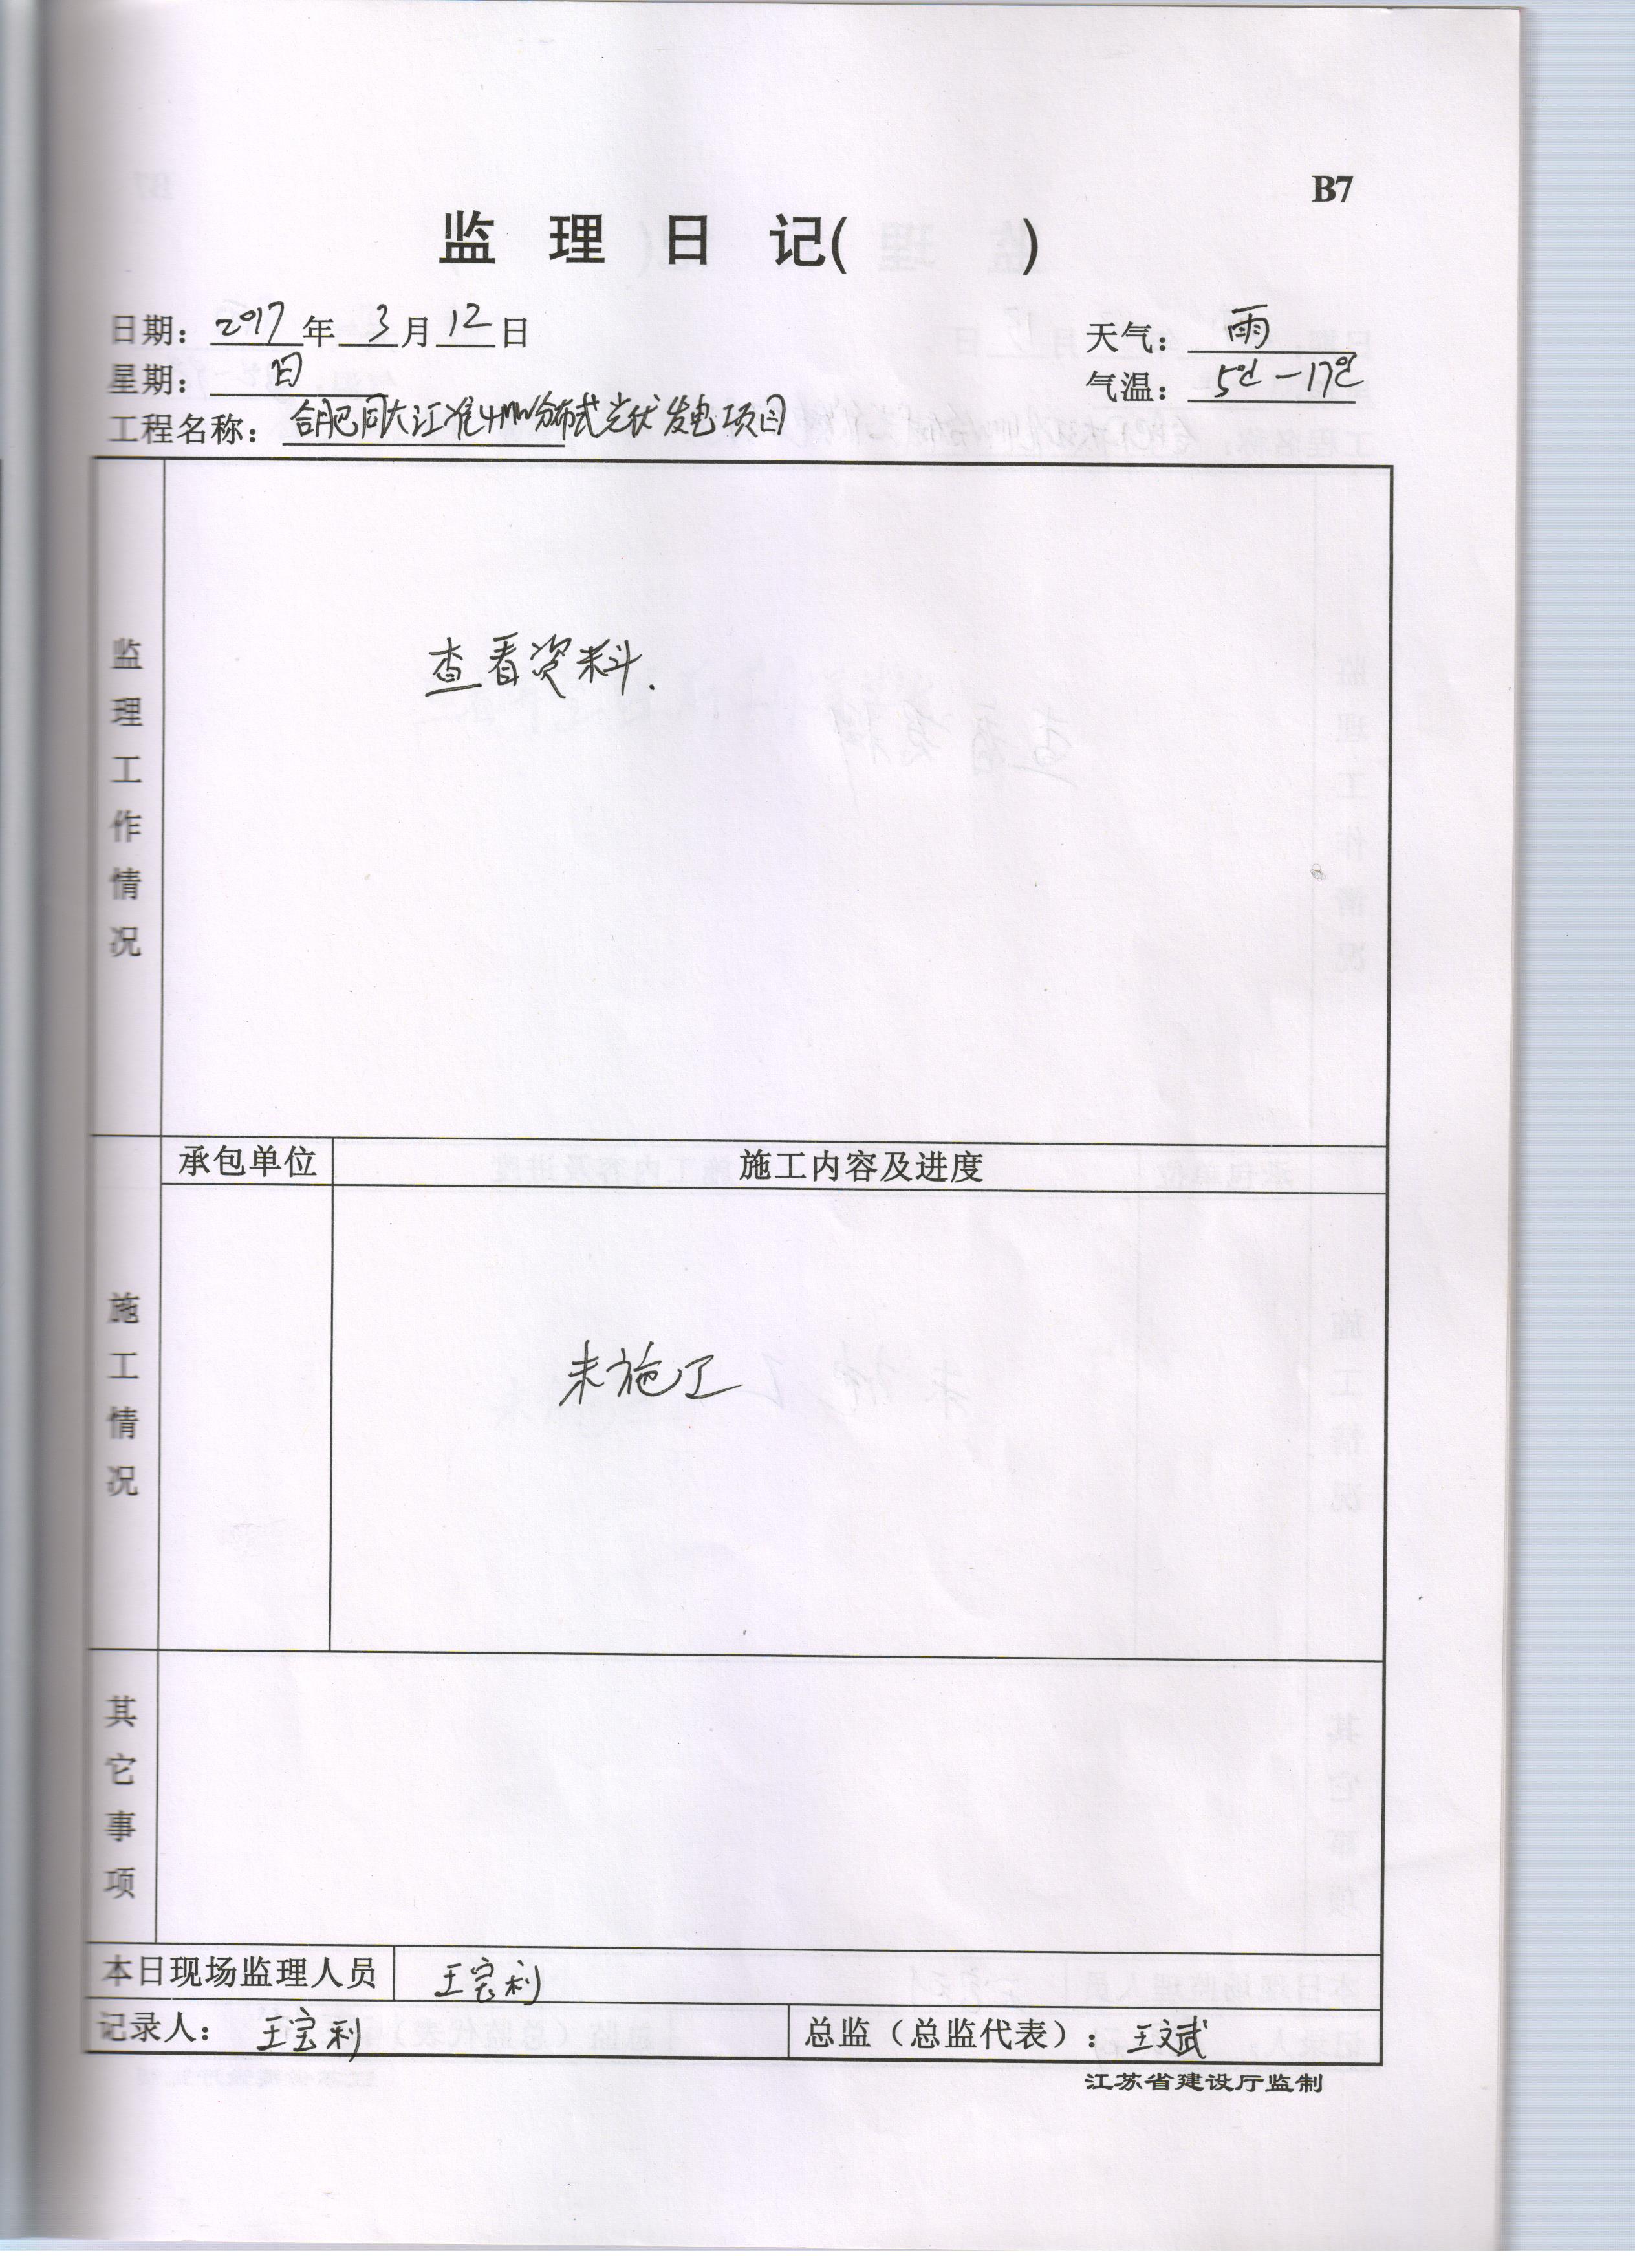 B7
监 理 日 记( )
日期: 2017 年 3 月 12 日 天气: 雨
星期: 日 气温: 5℃-17℃
工程名称: 合肥同大江淮4MW分布式光伏发电项目
监理工作情况
查看资料.
承包单位 施工内容及进度
施工情况
未施工
其它事项
本日现场监理人员 王宝利
记录人: 王宝利 总监（总监代表）: 王文斌
江苏省建设厅监制